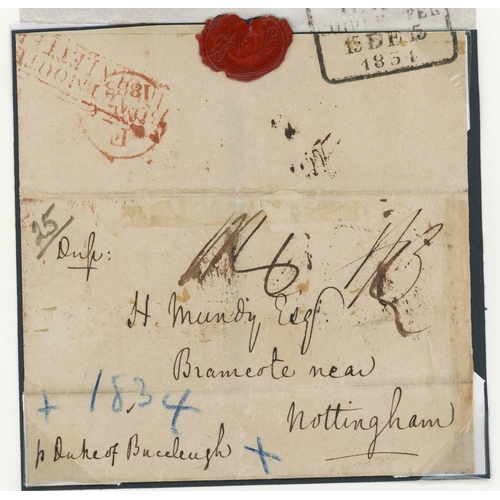 15 DE 15
1834
LETTER
1835
F
25
Dup:
1/3
H. Mundy Esqr.
Bramcote near
Nottingham
+ 1834
p Duke of Buccleugh +